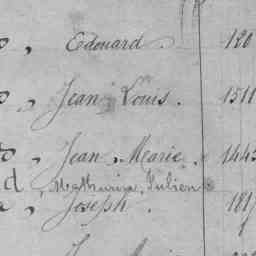 , Edouard. 120
, Jean Louis. 151
, Jean Marie. 144
d, Mathurin, Julien
, Joseph. 181